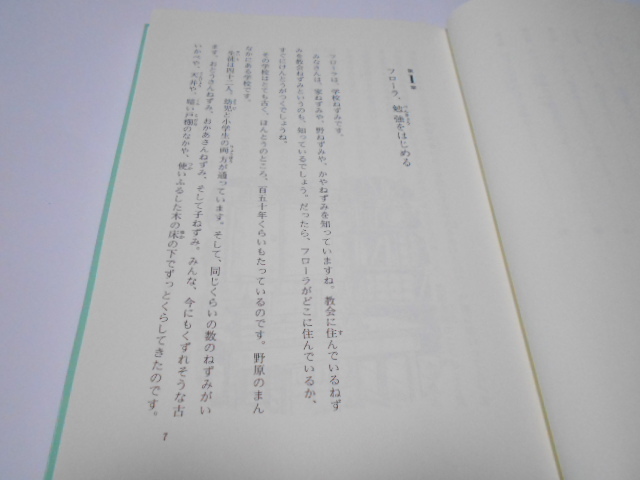 第1章
フローラ、勉強をはじめる
フローラは、学校ねずみです。
みなさんは、家ねずみや、野ねずみや、かやねずみを知っていますね。教会に住んでいるねず
みを教会ねずみというのも、知っているでしょう。だったら、フローラがどこに住んでいるか、
すぐにけんとうがつくでしょうね。
その学校はとても古く、ほんとうのところ、百五十年くらいもたっているのです。野原のまん
なかにある学校です。
生徒は四十二人。幼児と小学生の両方が通っています。そして、同じくらいの数のねずみがい
ます。おとうさんねずみ、おかあさんねずみ、そして子ねずみ。みんな、今にもくずれそうな古
いかべや、天井や、暗い戸棚のなかや、使いふるした木の床の下でずっとくらしてきたのです。
7